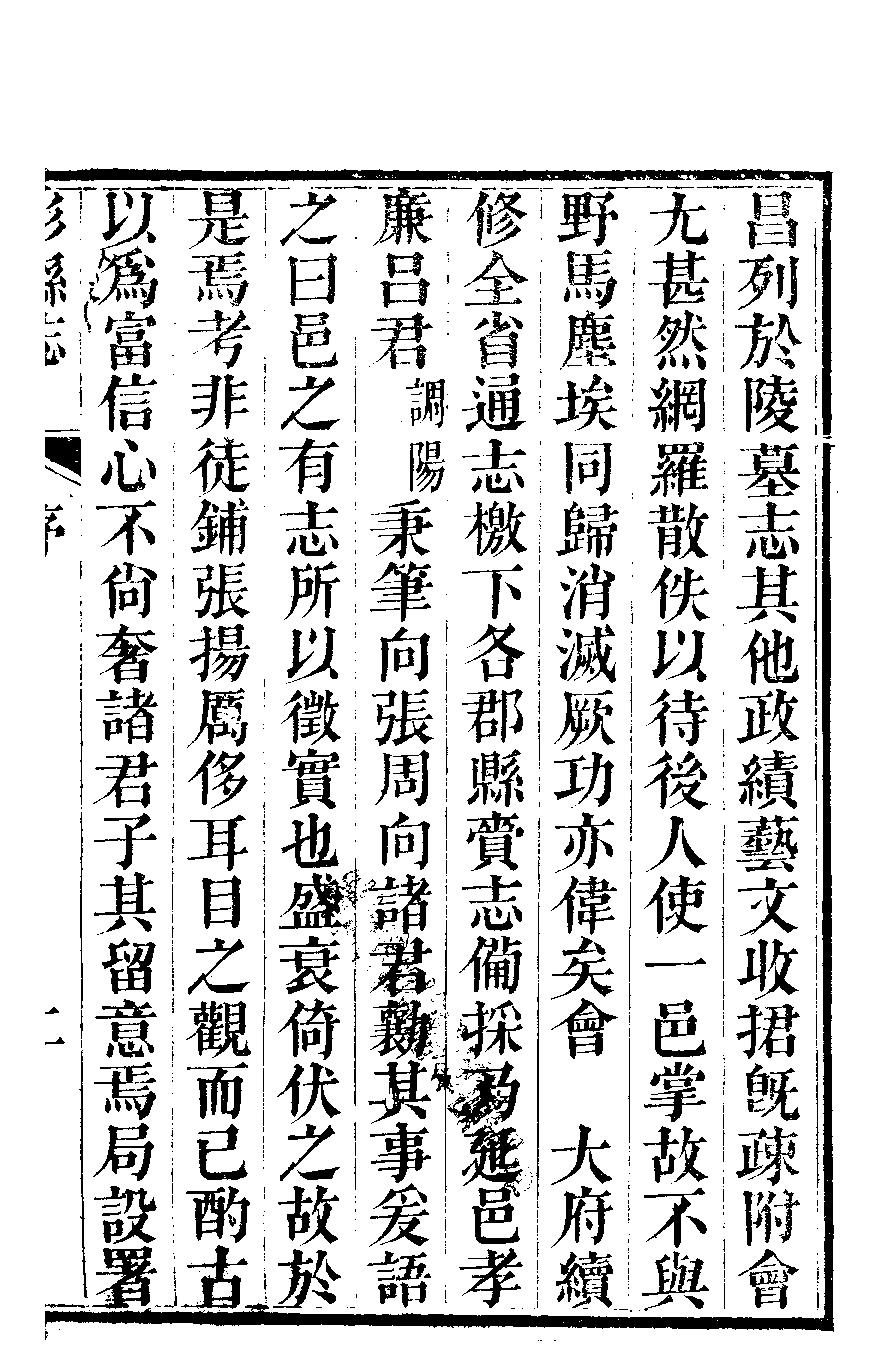 昌列於陵墓志其他政績藝文收捃旣疎附會
尢甚然網羅散佚以待後人使一邑掌故不與
野馬塵埃同歸消滅厥功亦偉矣會　大府續
修全省通志檄下各郡縣賫志備採乃延邑孝
廉呂君調陽秉筆向張周向諸君勷其事爰語
之曰邑之有志所以徵實也盛衰倚伏之故於
是焉考非徒鋪張揚厲侈耳目之觀而已酌古
以爲富信心不尙奢諸君子其留意焉局設署
彭縣志　序　二